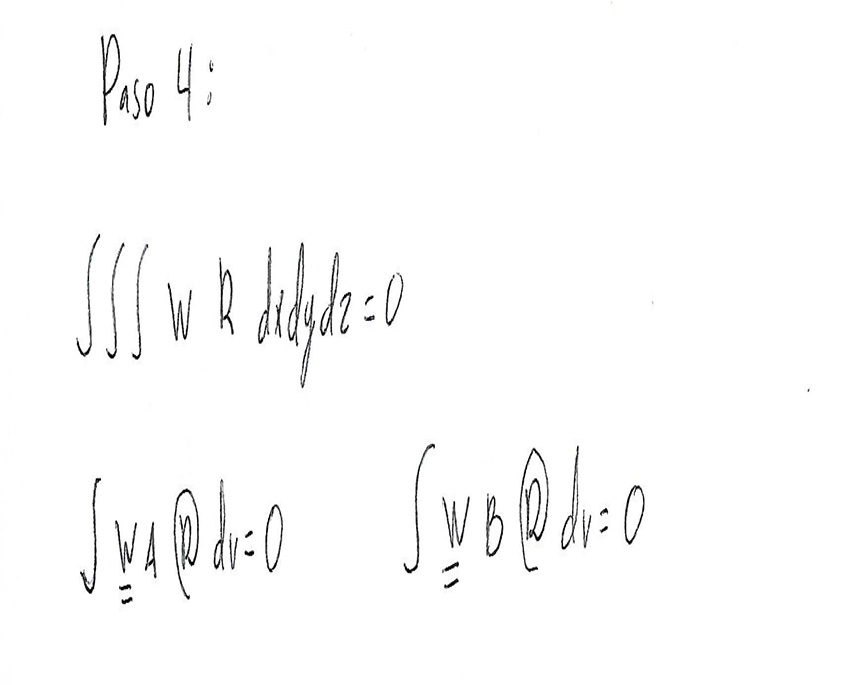 Paso 4:
∫∫∫ W R dxdydz = 0
∫ W A R dv = 0 ∫ W B R dv = 0